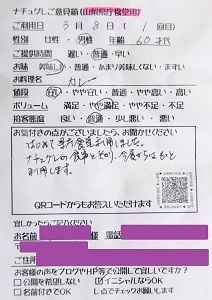 ナチュグレご意見箱(山梨県庁食堂用)
ご利用日 3月8日(1回目)
性別 女性・男性 年齢 60才代
ご提供時間 遅い・普通・早い
お味 美味しい・普通・あまり美味しくない・まずい
お料理名 カレー
値段 安い・やや安い・普通・やや高い・高い
ボリューム 満足・やや満足・普通・やや不足・不足
接客態度 良い・普通・少し悪い・悪い
お気付きの点がございましたら、お聞かせください
はじめて県庁食堂利用しました。
ナチュグレの食事とのこと、今度からはもっと
利用します。
QRコードからもお答えいただけます
宜しかったらご記入ください
お名前 様 電話
ご住所
お客様の声をブログやHP等で公開して宜しいですか?
□公開を希望しない ☑イニシャルならOK
□名前付きでOK し点でチェックお願いします